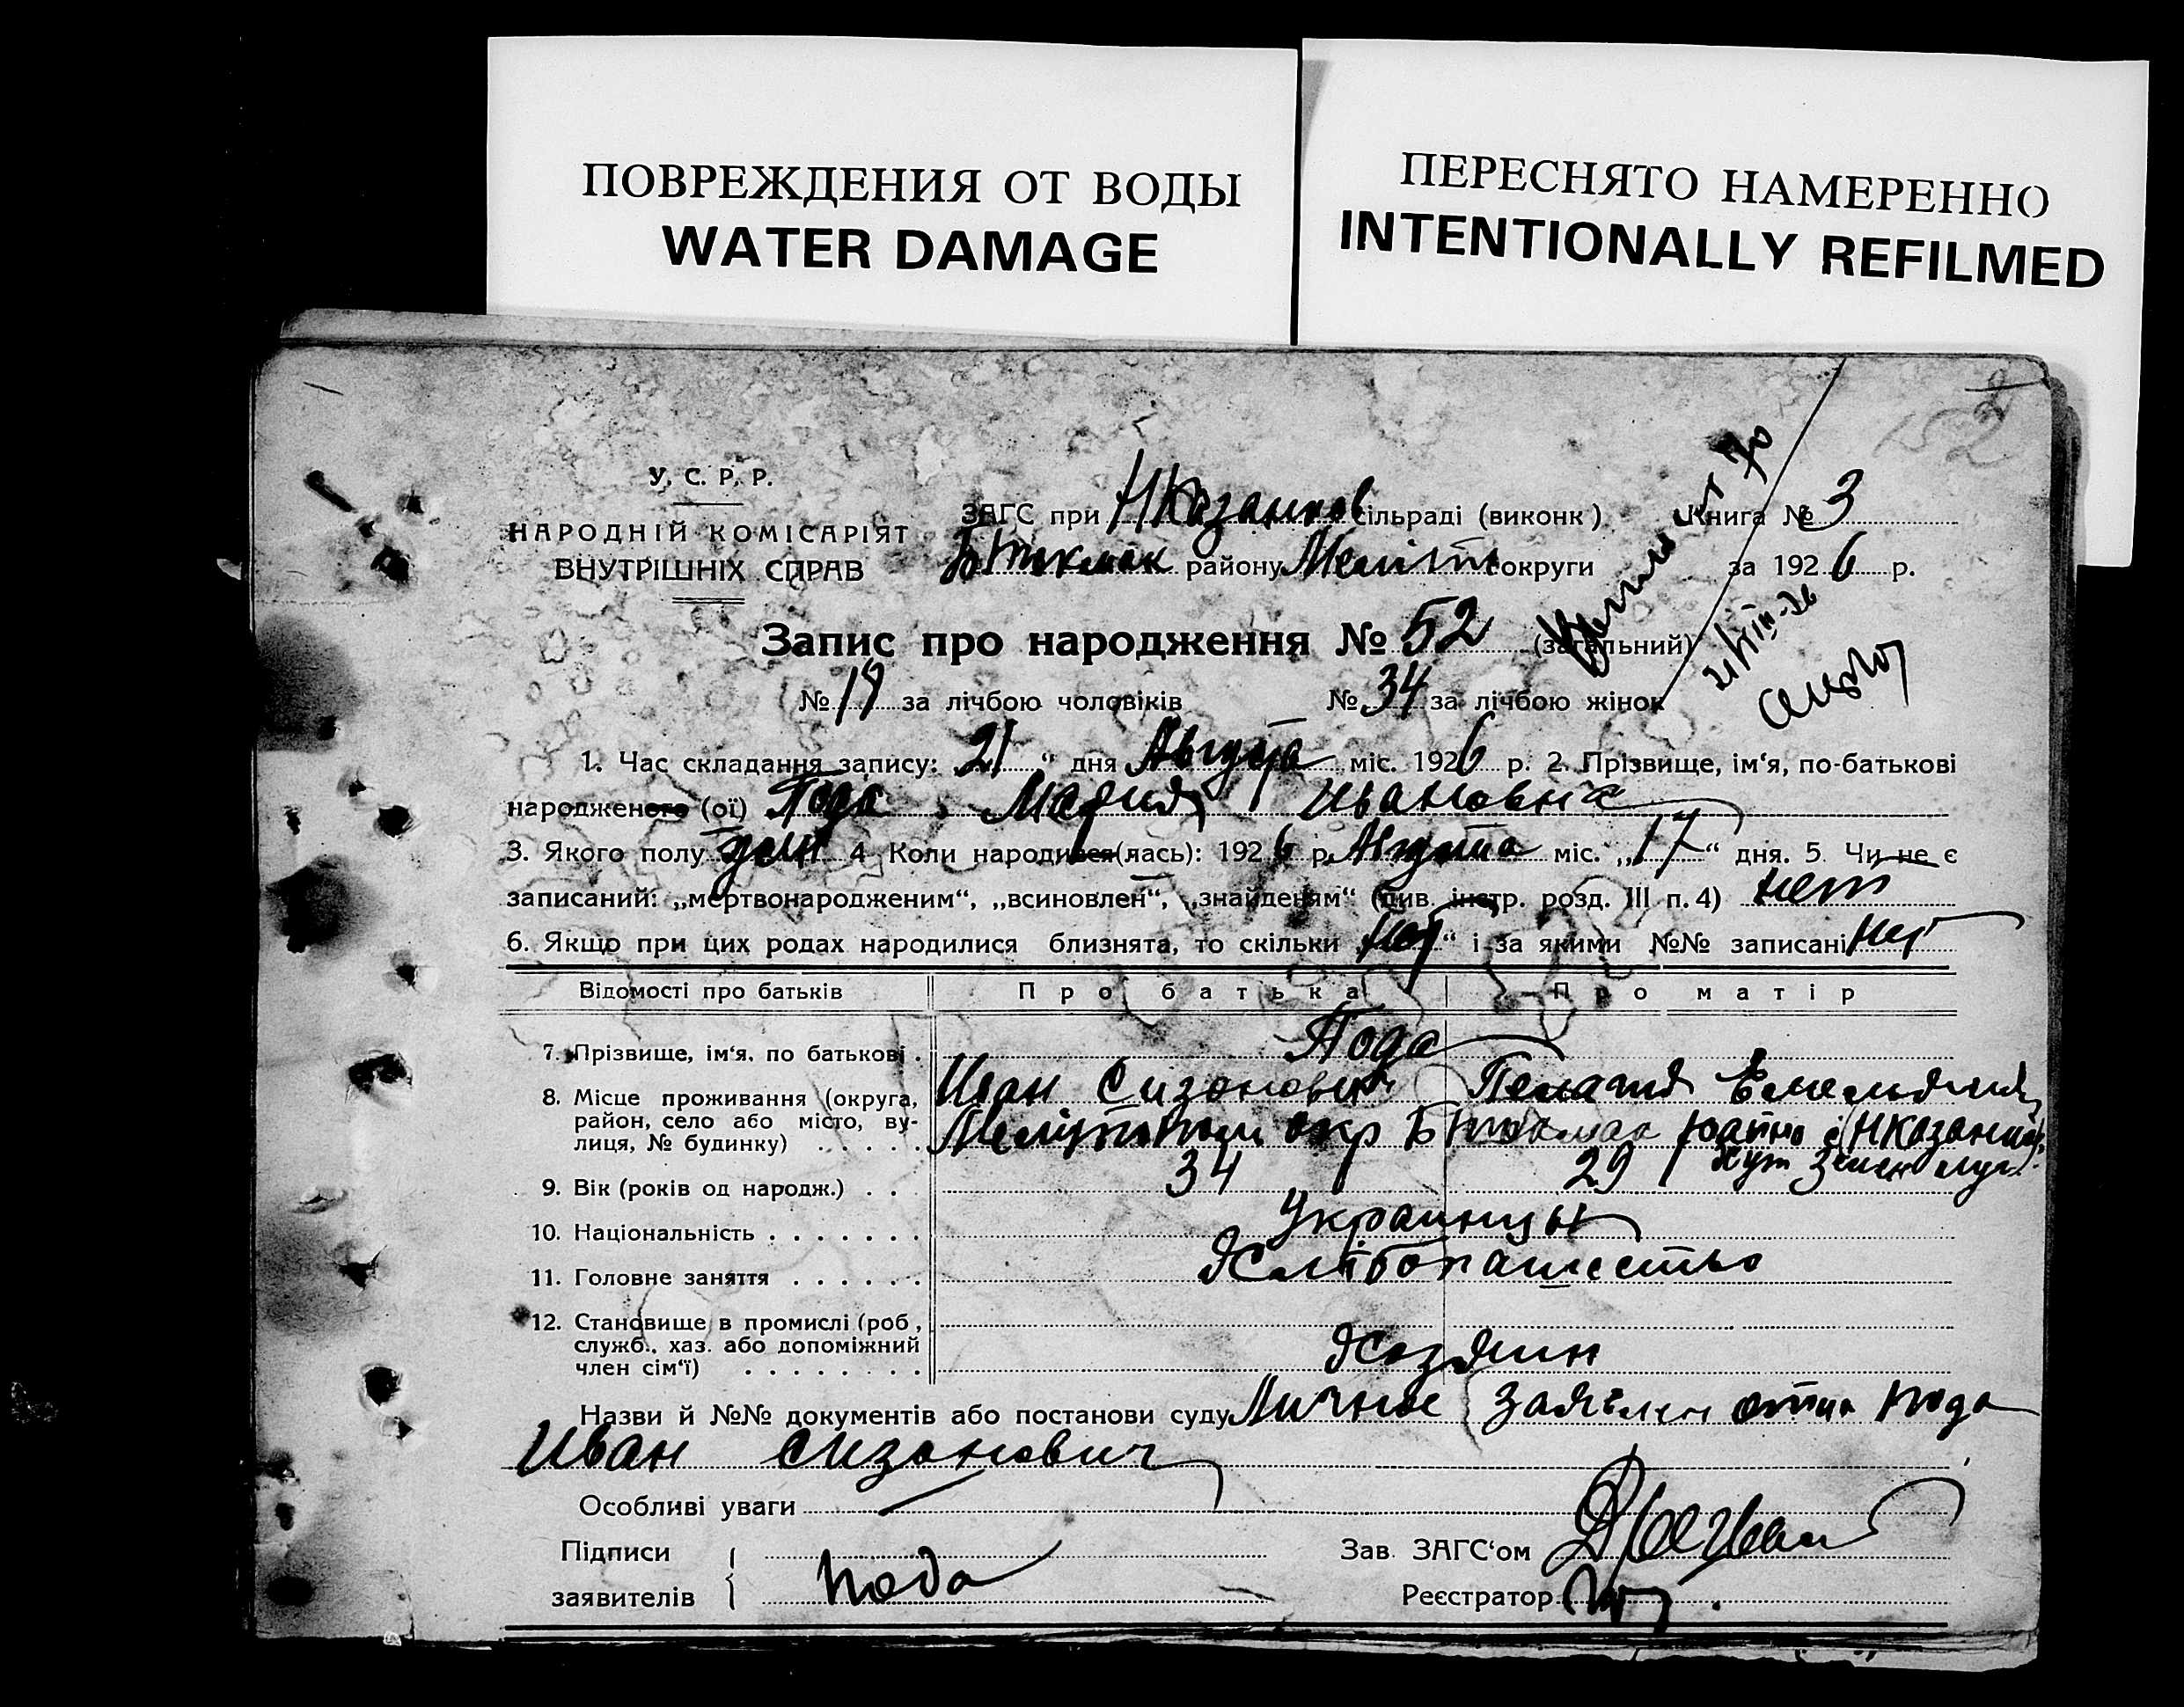 ПОВРЕЖДЕНИЯ ОТ ВОДЫ
WATER DAMAGE
ПЕРЕСНЯТО НАМЕРЕННО
INTENTIONALLY REFILMED
У. С. Р. Р.
НАРОДНІЙ КОМІСАРІЯТ
ВНУТРІШНІХ СПРАВ
ЗАГС при НКазанков сільраді (виконк) Книга № 3
БТокмак району Меліт округи за 1926 р.
Запис про народження № 52 (загальний)
№ 19 за лічбою чоловіків № 34 за лічбою жінок
1. Час складання запису: „21“ дня Августа міс. 1926 р. 2. Прізвище, ім‘я, по-батькові
народженого (ої) Пода Мария Ивановна
3. Якого полу жен 4. Коли народився(лась): 1926 р. Августа міс. „17“ дня. 5. Чи не є
записаний: „мертвонародженим“, „всиновлен“, „знайденям“ (див. інстр. розд. III п. 4) нет
6. Якщо при цих родах народилися близнята, то скільки „нет“ і за якими №№ записані нет
Відомості про батьків Про батька Про матір
7. Прізвище, ім‘я, по батькові . Пода
Иван Сизонович
8. Місце проживання (округа,
район, село або місто, ву-
лиця, № будинку) . . . . .
9. Вік (років од народж.) . . . 34 29
10. Національність . . . . . . . Украинцы
11. Головне заняття . . . . . . Хлібопашество
12. Становище в промислі (роб,
служб., хаз. або допоміжний
член сім‘ї) . . . . . . . . Хозяин
Назви й №№ документів або постанови суду Личное заявлен отца Пода
Иван Сизонович
Особливі уваги
Підписи
заявителів Пода
Зав. ЗАГС‘ом
Реєстратор